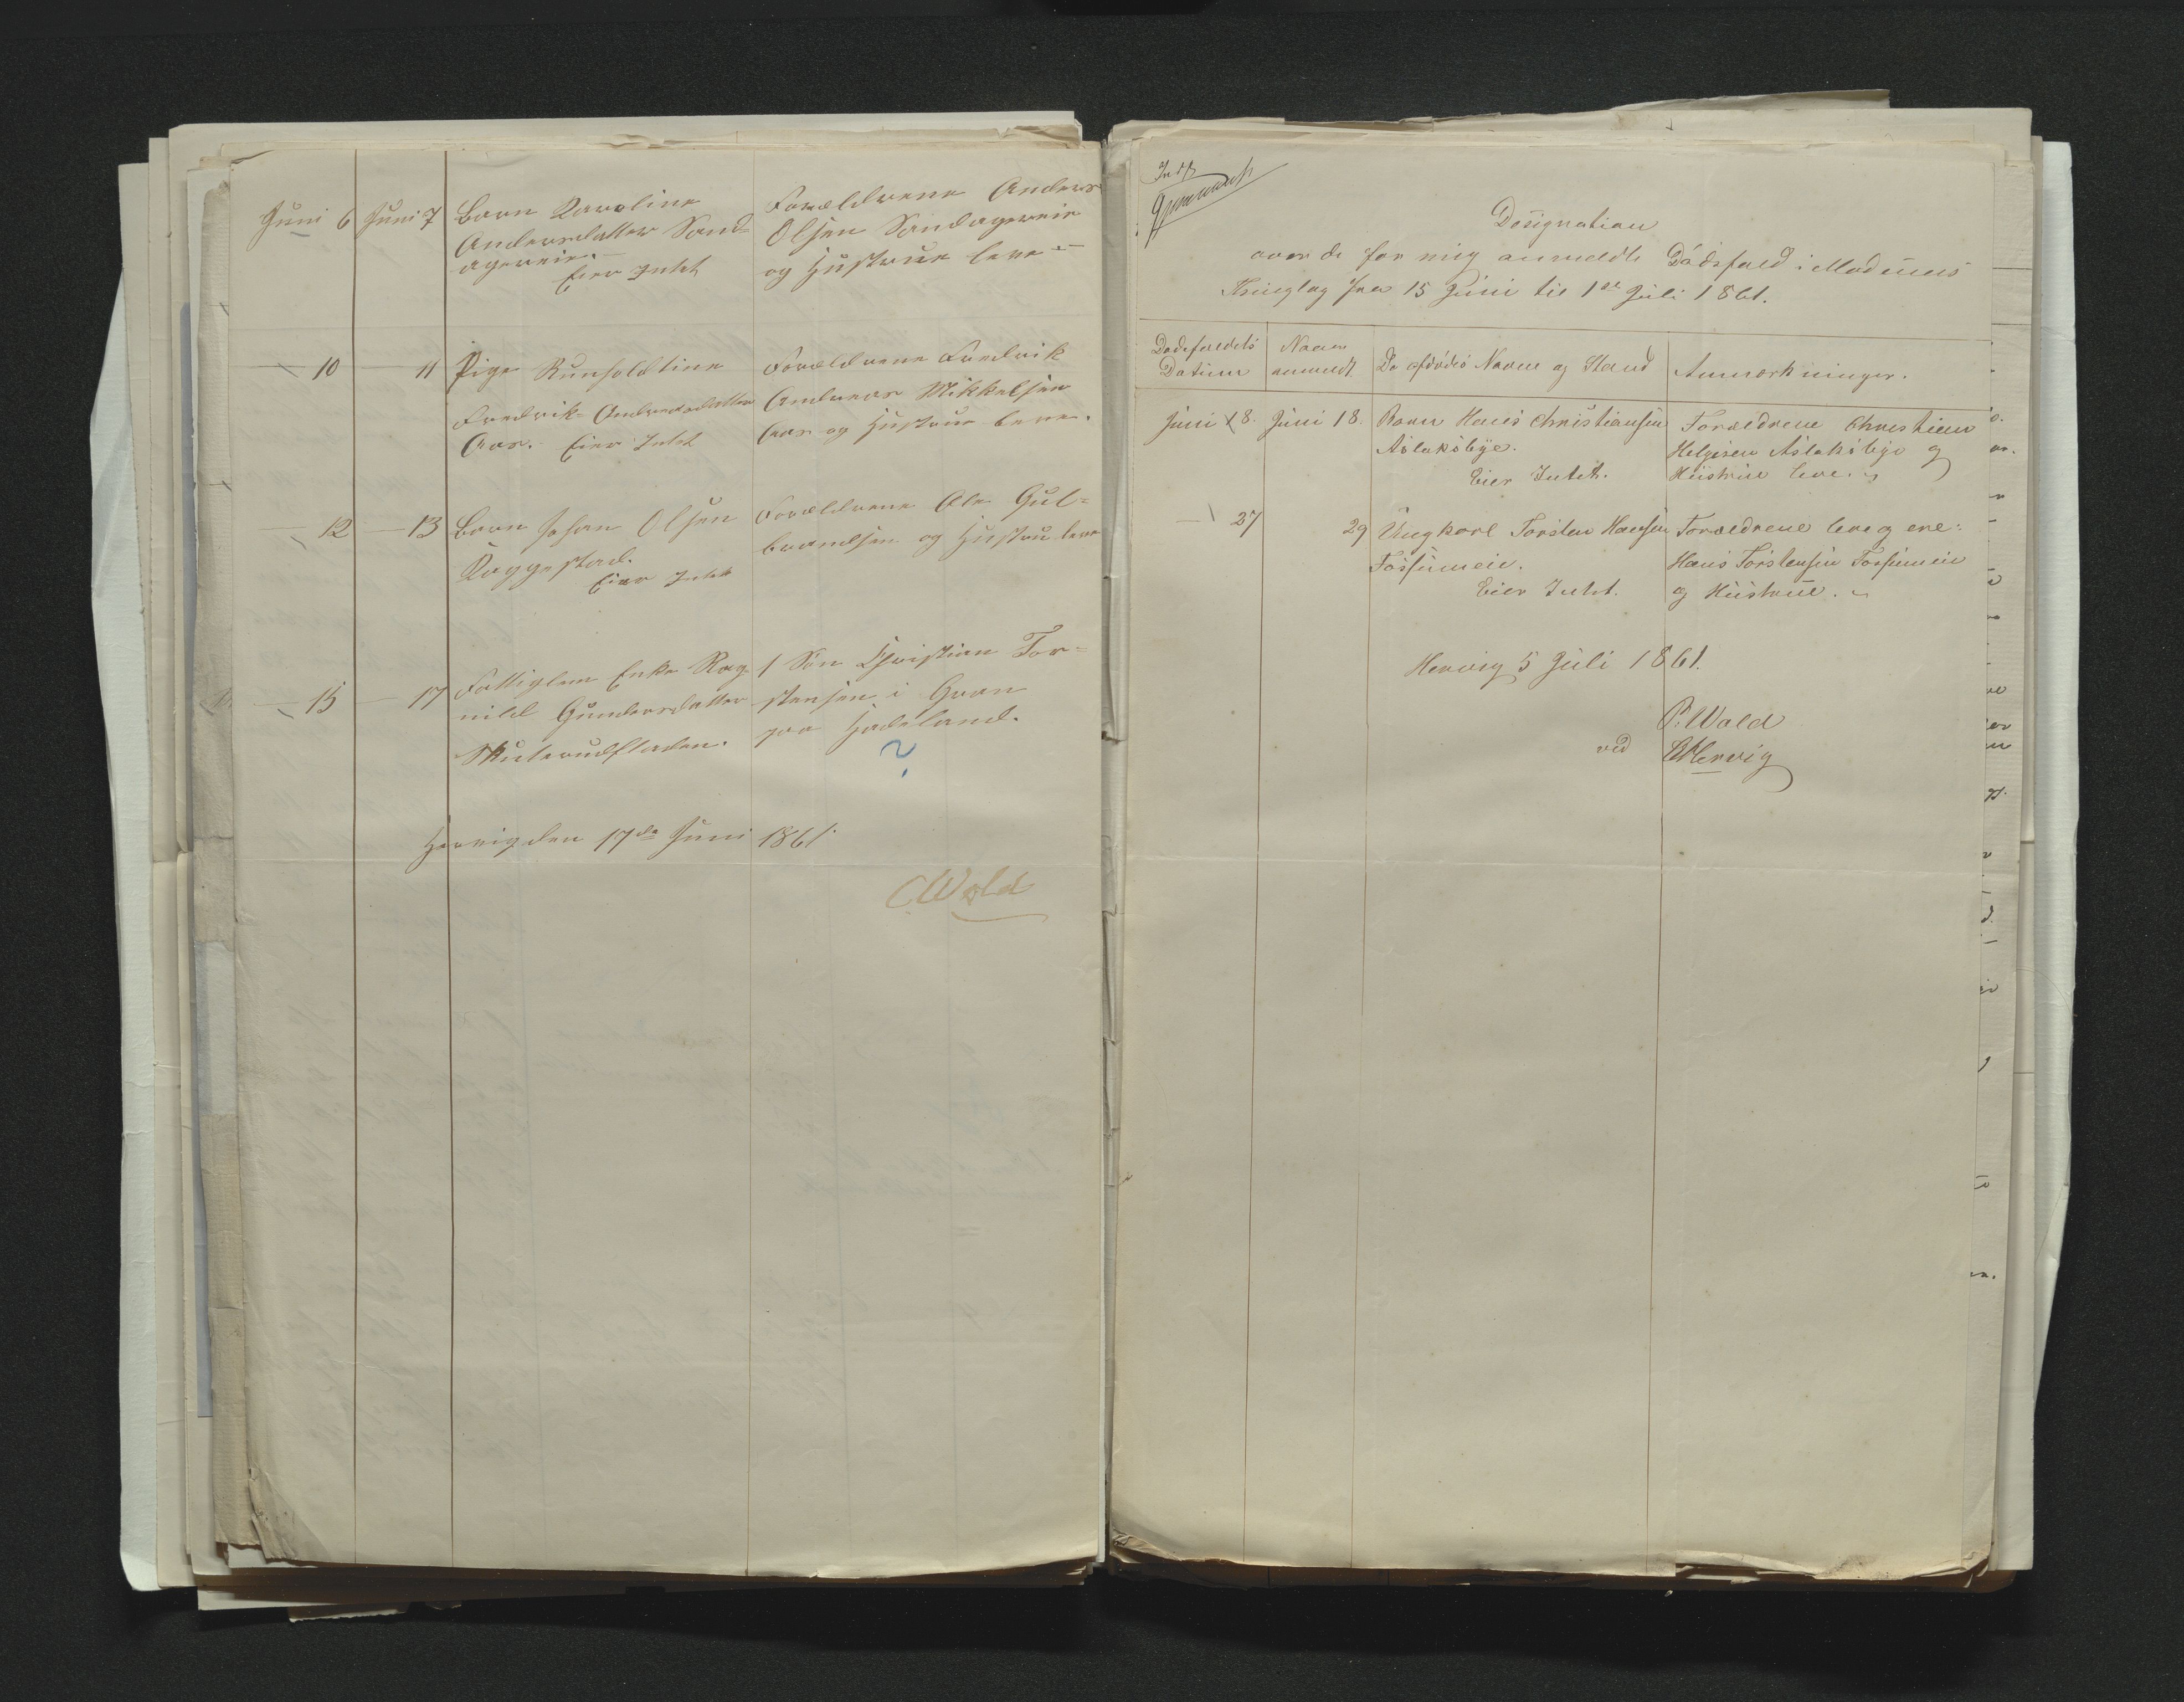 Juni 6 Juni 7 Barn Karoline
Andersdatter Sand-
agereie.
Eier Intet
Forældrene Anders
Olsen Sandagereie
og Hustrue leve
— 10 — 11 Pige Runholdtine
Fredrik Andreasdatter
Aas. Eier Intet
Forældrene Fredrik
Andreas Mikkelsen
Aas og Hustrue leve.
— 12 — 13 Barn Johan Olsen
Kaggestad.
Eier Intet
Forældrene Ole Gul-
brandsen og Hustru leve
— 15 — 17 Fattiglem Enke Rag-
nild Gundersdatter
Skuterudfladen.
1 Søn Christian Tor-
stensen i Gran
paa Hadeland.
?
Hervig den 17de Juni 1861.
C Wold
Designation
over de for mig anmeldte Dødsfald i Modums
Thinglag fra 15 Juni til 1ste Juli 1861.
Dødsfaldets
Datum
Naar
anmeldt
De afdødes Navne og Stand
Anmærkninger.
Juni 18. Juni 18. Barn Hans Christiansen
Aslaksbye.
Eier Intet.
Forældrene Christian
Helgesen Aslaksbye og
Hustrue leve.
— 27 29 Ungkarl Torsten Hansen
Fossumeie.
Eier Intet.
Forældrene leve og ere:
Hans Torstensen Fossumeie
og Hustrue.
Hervig 5 Juli 1861.
P. Wold
ved Hervig